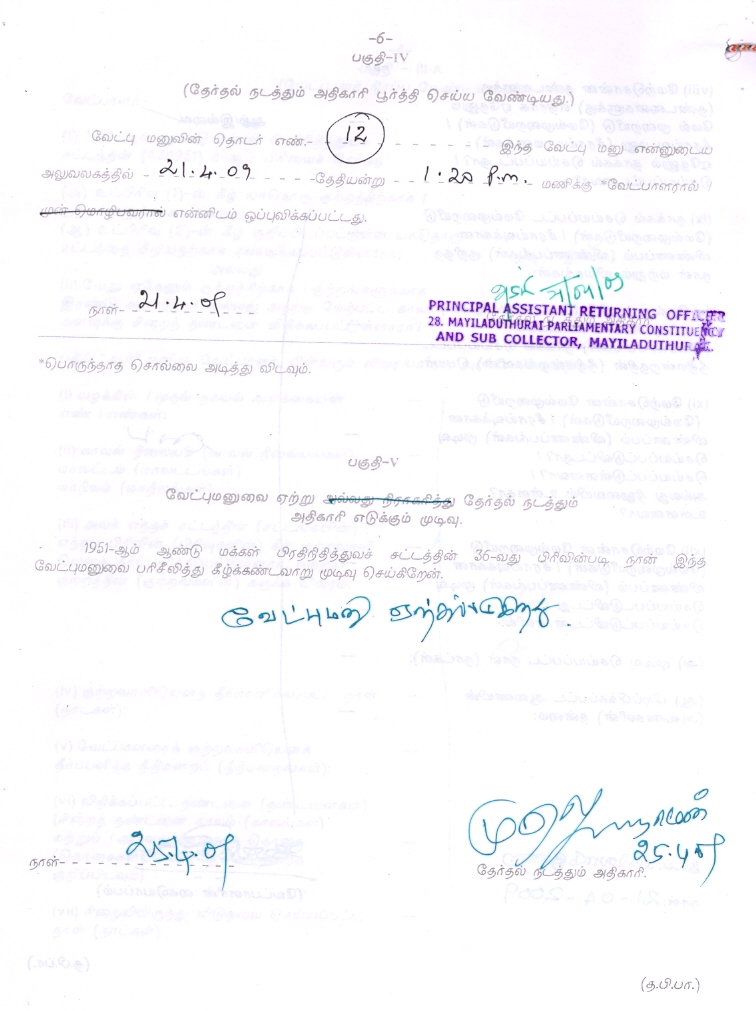 -6-
பகுதி-IV
(தேர்தல் நடத்தும் அதிகாரி பூர்த்தி செய்ய வேண்டியது.)
வேட்பு மனுவின் தொடர் எண்.- 12 இந்த வேட்பு மனு என்னுடைய
அலுவலகத்தில் 21.4.09 தேதியன்று 1.20 P.m. மணிக்கு *வேட்பாளரால் /
முன் மொழிபவரால் என்னிடம் ஒப்புவிக்கப்பட்டது.
நாள்- 21.4.09
PRINCIPAL ASSISTANT RETURNING OFFICER
28. MAYILADUTHURAI PARLIAMENTARY CONSTITUENCY
AND SUB COLLECTOR, MAYILADUTHURAI.
*பொருந்தாத சொல்லை அடித்து விடவும்.
பகுதி-V
வேட்புமனுவை ஏற்று அல்லது நிராகரித்து தேர்தல் நடத்தும்
அதிகாரி எடுக்கும் முடிவு.
1951-ஆம் ஆண்டு மக்கள் பிரதிநிதித்துவச் சட்டத்தின் 36-வது பிரிவின்படி, நான் இந்த
வேட்புமனுவை பரிசீலித்து கீழ்க்கண்டவாறு முடிவு செய்கிறேன்.
வேட்புமனு ஏற்கப்படுகிறது.
நாள்- 25.4.09
25.4.09
தேர்தல் நடத்தும் அதிகாரி.
(த.பி.பா.)